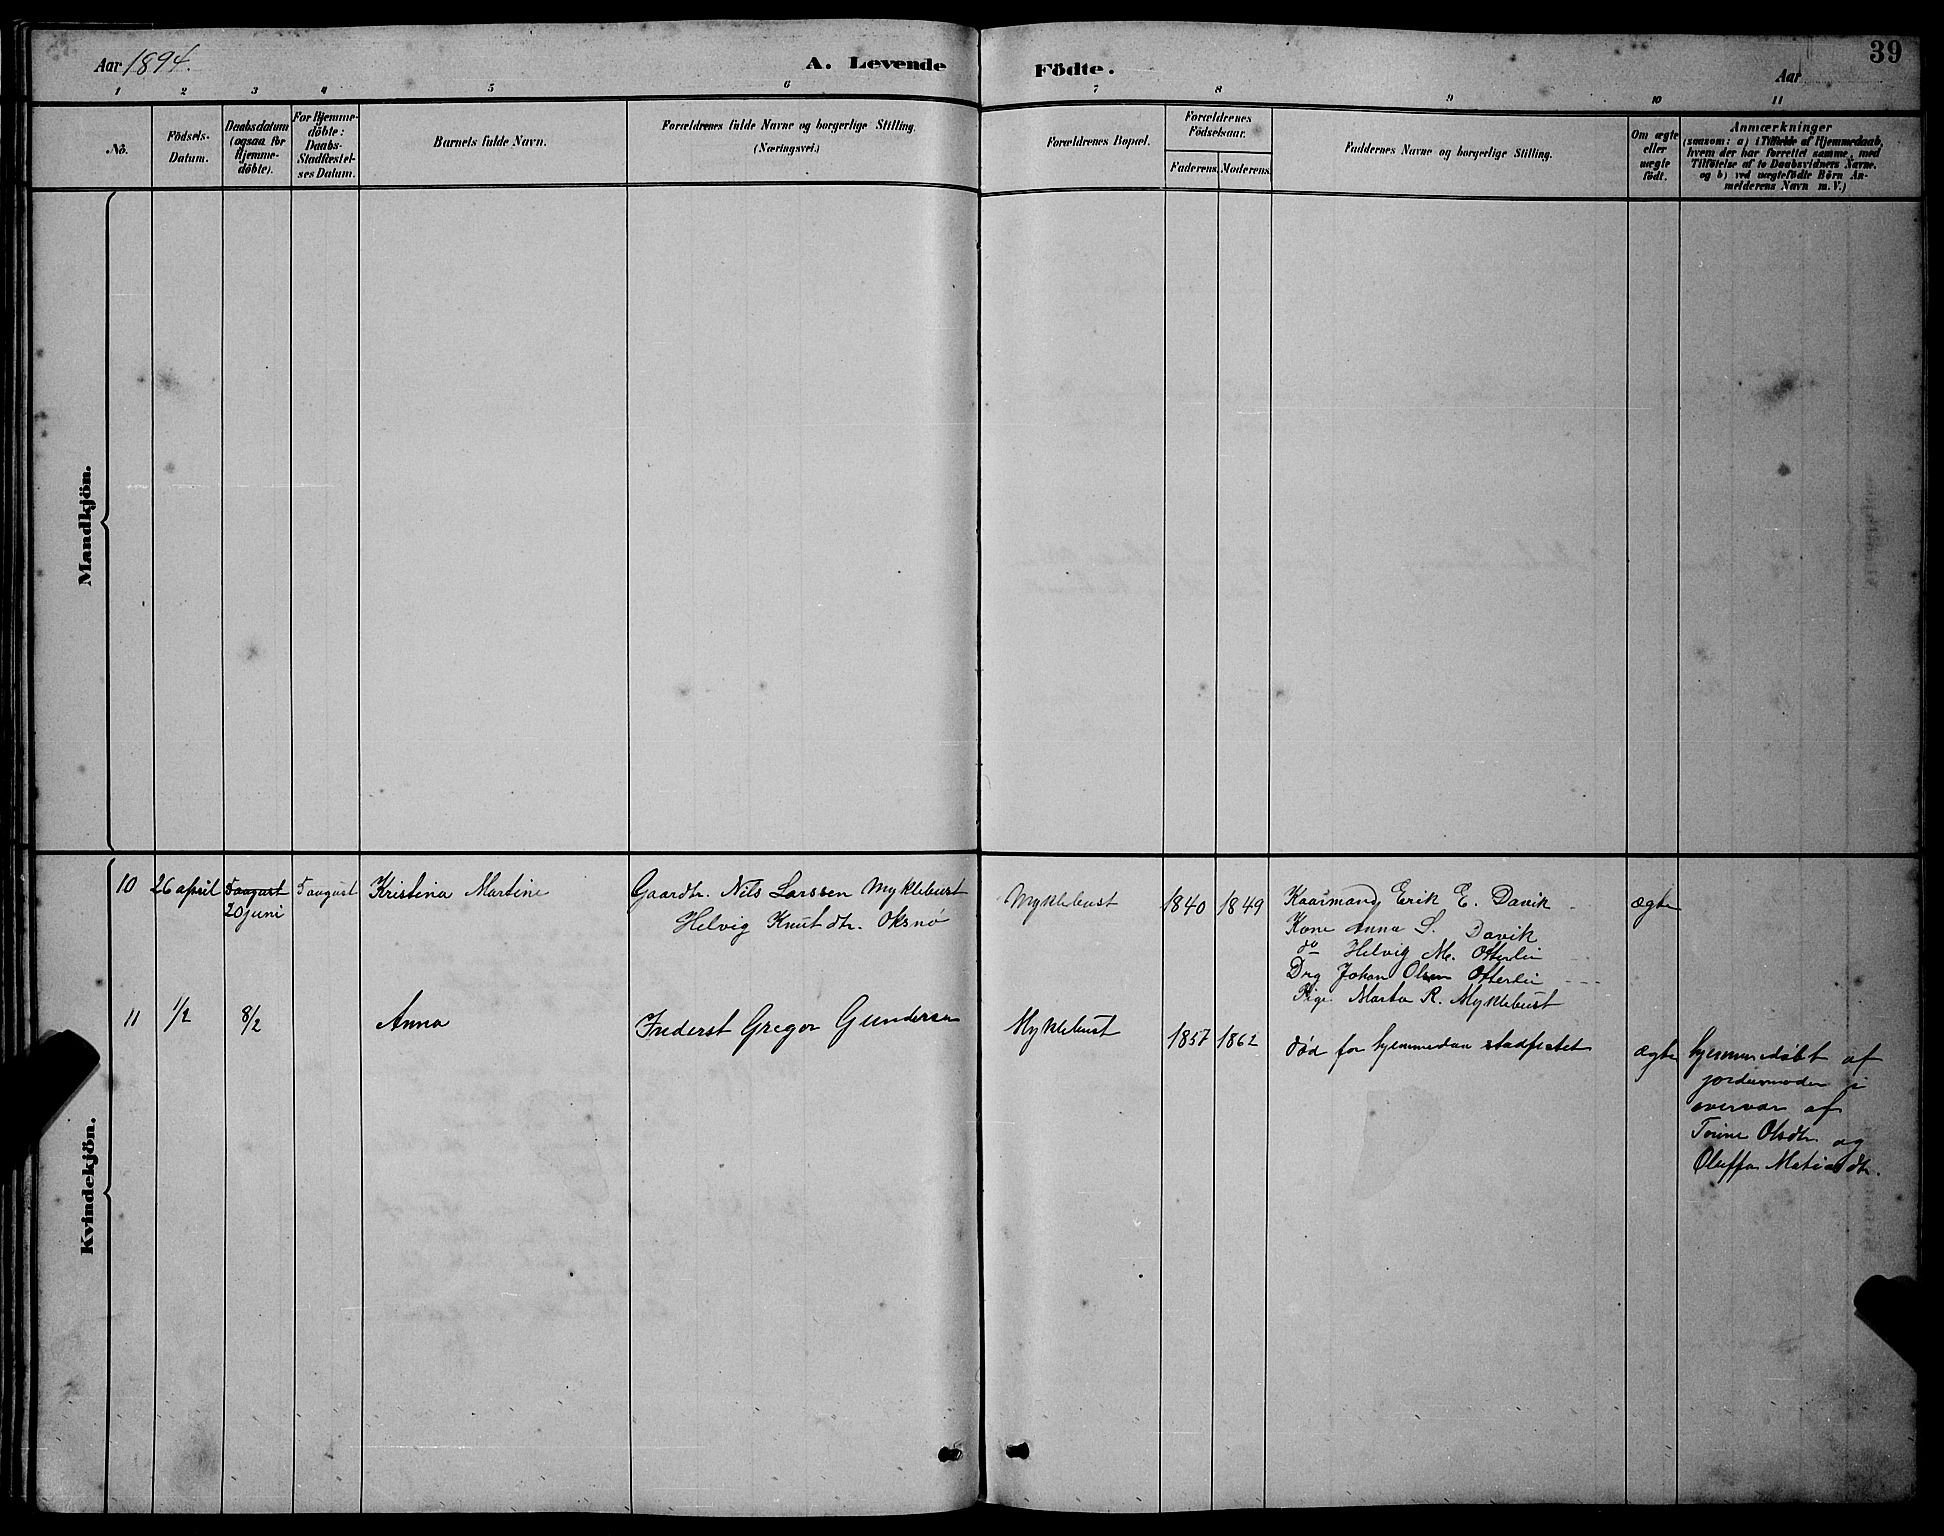 Aar 1894.
A. Levende Födte.
Aar
39
1 2 3 4 5 6 7 8 9 10 11
No.
Födsels-
Datum.
Daabsdatum
(ogsaa for
Hjemme-
döbte).
For Hjemme-
döbte:
Daabs-
Stadfæstel-
ses Datum.
Barnets fulde Navn.
Forældrenes fulde Navne og borgerlige Stilling.
(Næringsvei.)
Forældrenes Bopæl.
Forældrenes
Födselsaar.
Faderens. Moderens.
Faddernes Navne og borgerlige Stilling.
Om ægte
eller
uægte
födt.
Anmærkninger
(saasom: a) i Tilfælde af Hjemmedaab,
hvem der har forrettet samme, med
Tilföielse af to Daabsvidners Navne,
og b) ved uægtefödte Börn An-
melderens Navn m. V.)
Mandkjön.
Kvindekjön.
10 26 april 5 august 5 august Kristina Martine Gaardbr. Nils Larssen Myklebust Myklebust 1840 1849 Kaarmand Erik E. Davik ægte
20 juni Helvig Knutdtr. Oksnø
Kone Anna S. Davik
do Helvig M. Otterlei
Drg Johan Olsen Otterlei
Pige Marta R. Myklebust
11 1/2 8/2 Anna Inderst Gregor Gundersen Myklebust 1857 1862 død før hjemmedaa stadfestet ægte hjemmedøbt af
jordermoder i
overvær af
Torine Olsdtr og
Oluffa Matiasdtr.